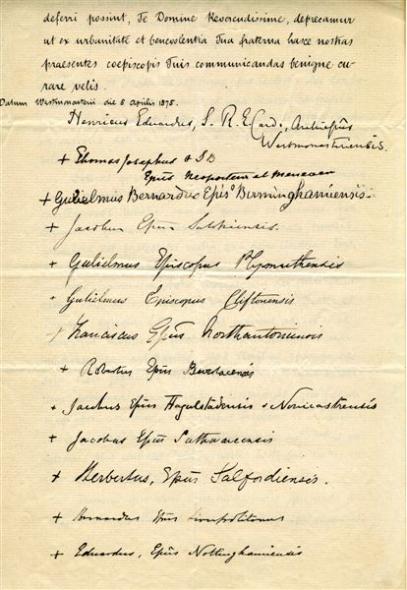 deferri possint, Te Domine Reverendissime, deprecamur
ut ex urbanitate et benevolentia Tua fraterna hasce nostras
praesentes coepiscopis Tuis communicandas benigne cu-
rare velis.
Datum Westmonasterii die 6 Aprilis 1875.
Henricus Eduardus, S. R. E. Card., Archiepũs
Westmonasteriensis.
+ Thomas Josephus O S B
Epũs Neoporten et Meneven
+ Gulielmus Bernardus Epis° Birminghamiensis.
+ Jacobus Epũs Salopiensis.
+ Gulielmus Episcopus Plymuthensis
+ Gulielmus Episcopus Cliftonensis
+ Franciscus Epũs Northantoniensis
+ Robertus Epũs Beverlacensis
+ Jacobus Epũs Hagulstadensis & Novicastrensis
+ Jacobus Epũs Suthwarcensis
+ Herbertus, Epũs Salfordiensis.
+ Bernardus Epũs Liverpolitanus
+ Eduardus, Epũs Nottinghamiensis